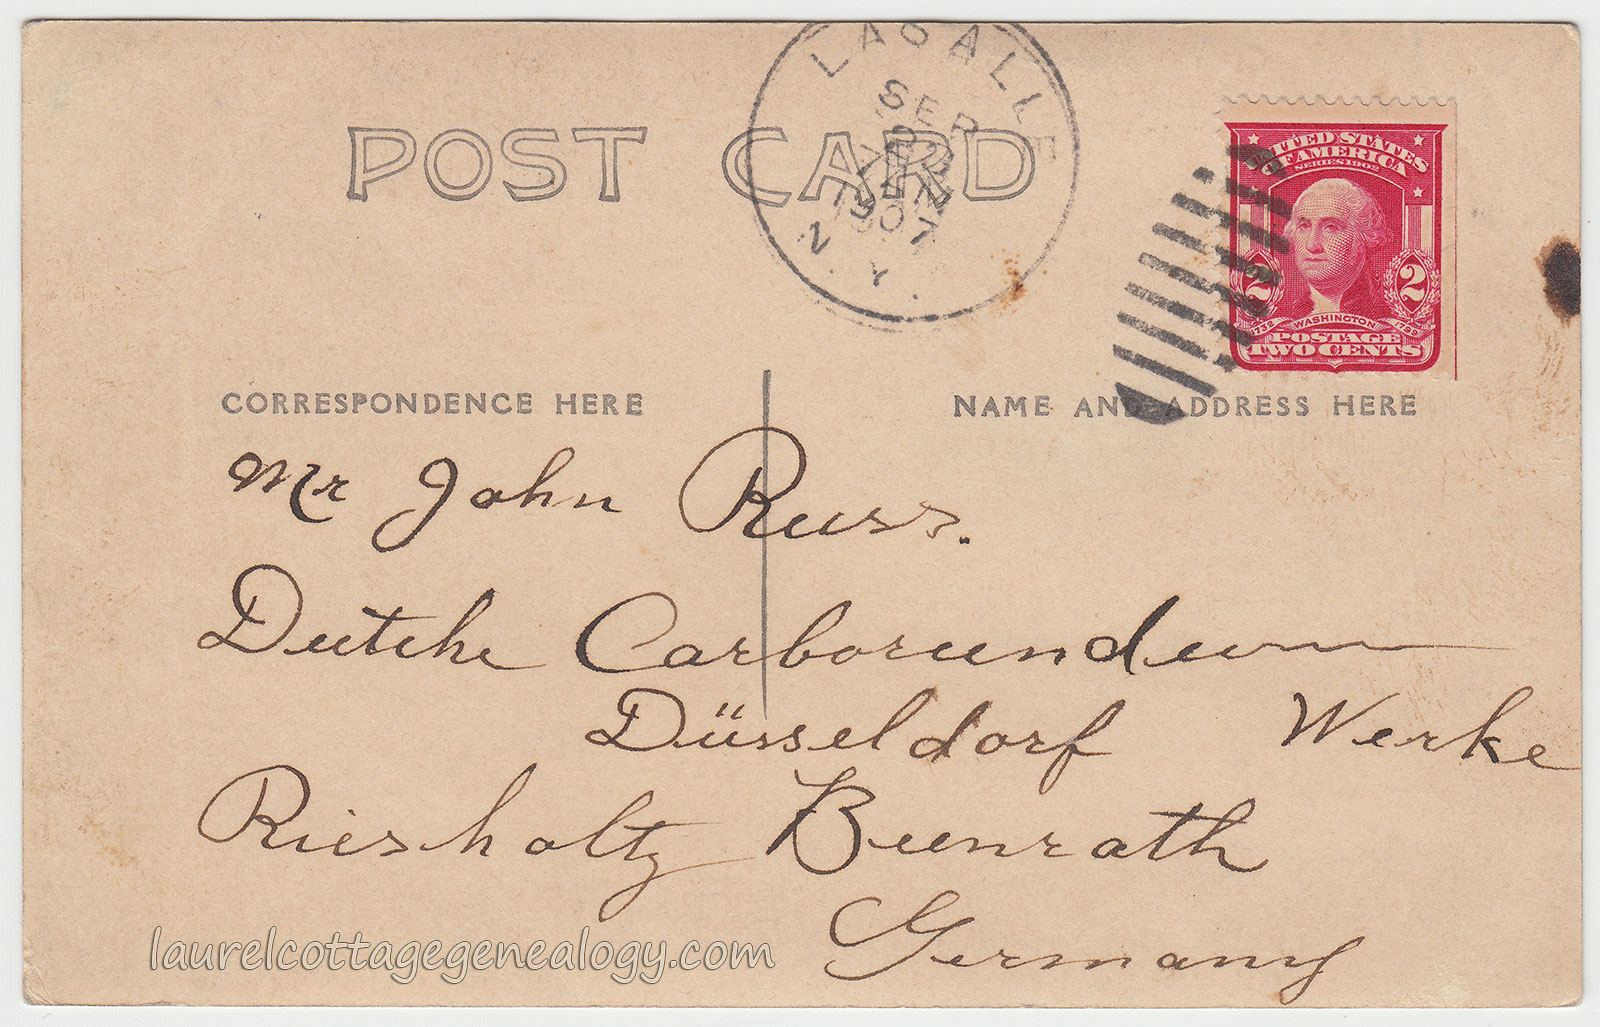 POST CARD
LASALLE
SEP
1907
N.Y.
UNITED STATES
OF AMERICA
SERIES 1902
2 2
1732 WASHINGTON 1799
POSTAGE
TWO CENTS
CORRESPONDENCE HERE
NAME AND ADDRESS HERE
Mr John Russ.
Dutche Carborundum
Düsseldorf Werke
Riesholtz Benrath
Germany
laurelcottagegenealogy.com